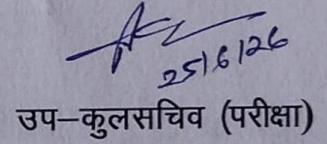 25/6/26
उप–कुलसचिव (परीक्षा)